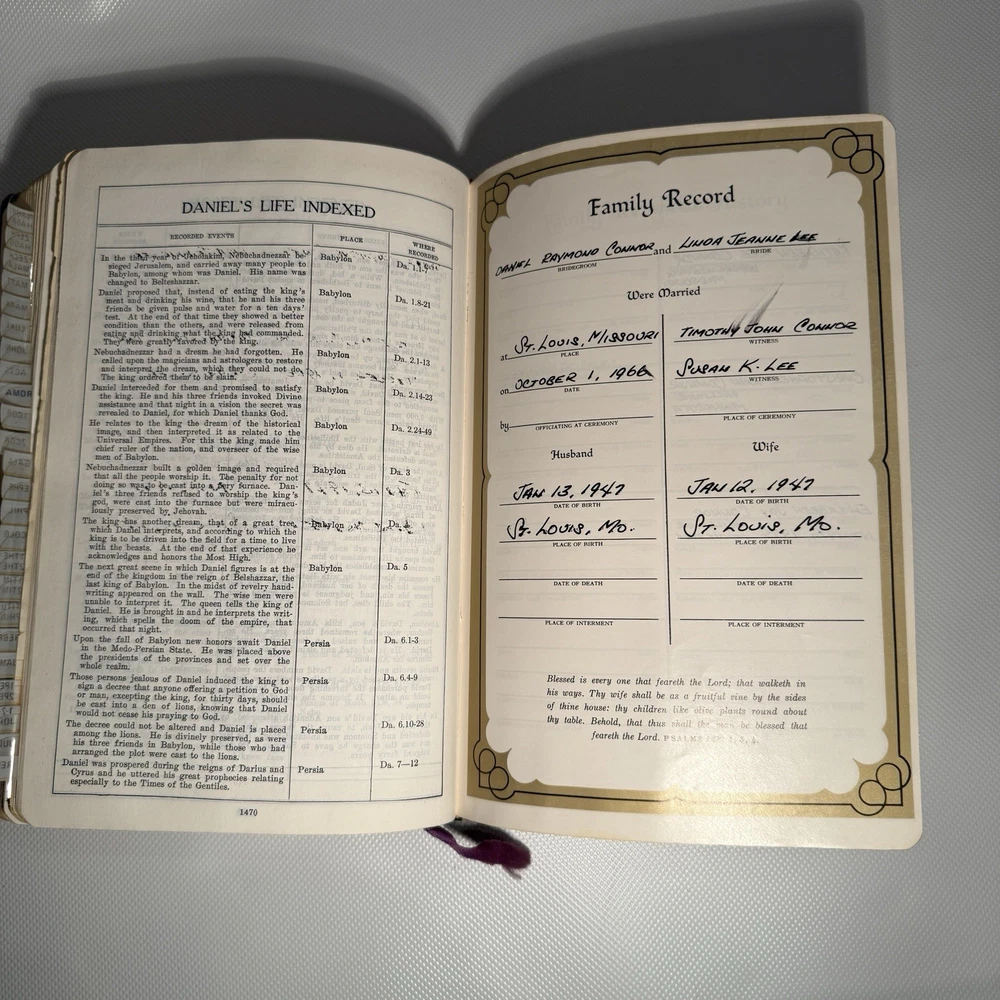 DANIEL'S LIFE INDEXED
RECORDED EVENTS
PLACE
WHERE RECORDED
In the third year of Jehoiakim, Nebuchadnezzar be
sieged Jerusalem, and carried away many people to
Babylon, among whom was Daniel. His name was
changed to Belteshazzar.
Babylon
Da. 1.1-7
Daniel proposed that, instead of eating the king's
meat and drinking his wine, that he and his three
friends be given pulse and water for a ten days'
test. At the end of that time they showed a better
condition than the others, and were released from
eating and drinking what the king had commanded.
They were greatly favored by the king.
Babylon
Da. 1.8-21
Nebuchadnezzar had a dream he had forgotten. He
called upon the magicians and astrologers to restore
and interpret the dream, which they could not do.
The king ordered them to be slain.
Babylon
Da. 2.1-13
Daniel interceded for them and promised to satisfy
the king. He and his three friends invoked Divine
assistance and that night in a vision the secret was
revealed to Daniel, for which Daniel thanks God.
Babylon
Da. 2.14-23
He relates to the king the dream of the historical
image, and then interpreted it as related to the
Universal Empires. For this the king made him
chief ruler of the nation, and overseer of the wise
men of Babylon.
Babylon
Da. 2.24-49
Nebuchadnezzar built a golden image and required
that all the people worship it. The penalty for not
doing so was to be cast into a fiery furnace. Dan-
iel's three friends refused to worship the king's
god, were cast into the furnace but were miracu-
lously preserved by Jehovah.
Babylon
Da. 3
The king has another dream, that of a great tree,
which Daniel interprets, and according to which the
king is to be driven into the field for a time to live
with the beasts. At the end of that experience he
acknowledges and honors the Most High.
Babylon
Da. 4
The next great scene in which Daniel figures is at the
end of the kingdom in the reign of Belshazzar, the
last king of Babylon. In the midst of revelry hand-
writing appeared on the wall. The wise men were
unable to interpret it. The queen tells the king of
Daniel. He is brought in and he interprets the writ-
ing, which spells the doom of the empire, that
occurred that night.
Babylon
Da. 5
Upon the fall of Babylon new honors await Daniel
in the Medo-Persian State. He was placed above
the presidents of the provinces and set over the
whole realm.
Persia
Da. 6.1-3
Those persons jealous of Daniel induced the king to
sign a decree that anyone offering a petition to God
or man, excepting the king, for thirty days, should
be cast into a den of lions, knowing that Daniel
would not cease his praying to God.
Persia
Da. 6.4-9
The decree could not be altered and Daniel is placed
among the lions. He is divinely preserved, as were
his three friends in Babylon, while those who had
arranged the plot were cast to the lions.
Persia
Da. 6.10-28
Daniel was prospered during the reigns of Darius and
Cyrus and he uttered his great prophecies relating
especially to the Times of the Gentiles.
Persia
Da. 7—12
1470
Family Record
DANIEL RAYMOND CONNOR and LINDA JEANNE LEE
BRIDEGROOM
BRIDE
Were Married
at ST. LOUIS, MISSOURI
PLACE
TIMOTHY JOHN CONNOR
WITNESS
on OCTOBER 1, 1966
DATE
SUSAN K. LEE
WITNESS
by
OFFICIATING AT CEREMONY
PLACE OF CEREMONY
Husband
Wife
JAN 13, 1947
DATE OF BIRTH
JAN 12, 1947
DATE OF BIRTH
ST. LOUIS, MO.
PLACE OF BIRTH
ST. LOUIS, MO.
PLACE OF BIRTH
DATE OF DEATH
DATE OF DEATH
PLACE OF INTERMENT
PLACE OF INTERMENT
Blessed is every one that feareth the Lord; that walketh in
his ways. Thy wife shall be as a fruitful vine by the sides
of thine house: thy children like olive plants round about
thy table. Behold, that thus shall the man be blessed that
feareth the Lord. PSALMS